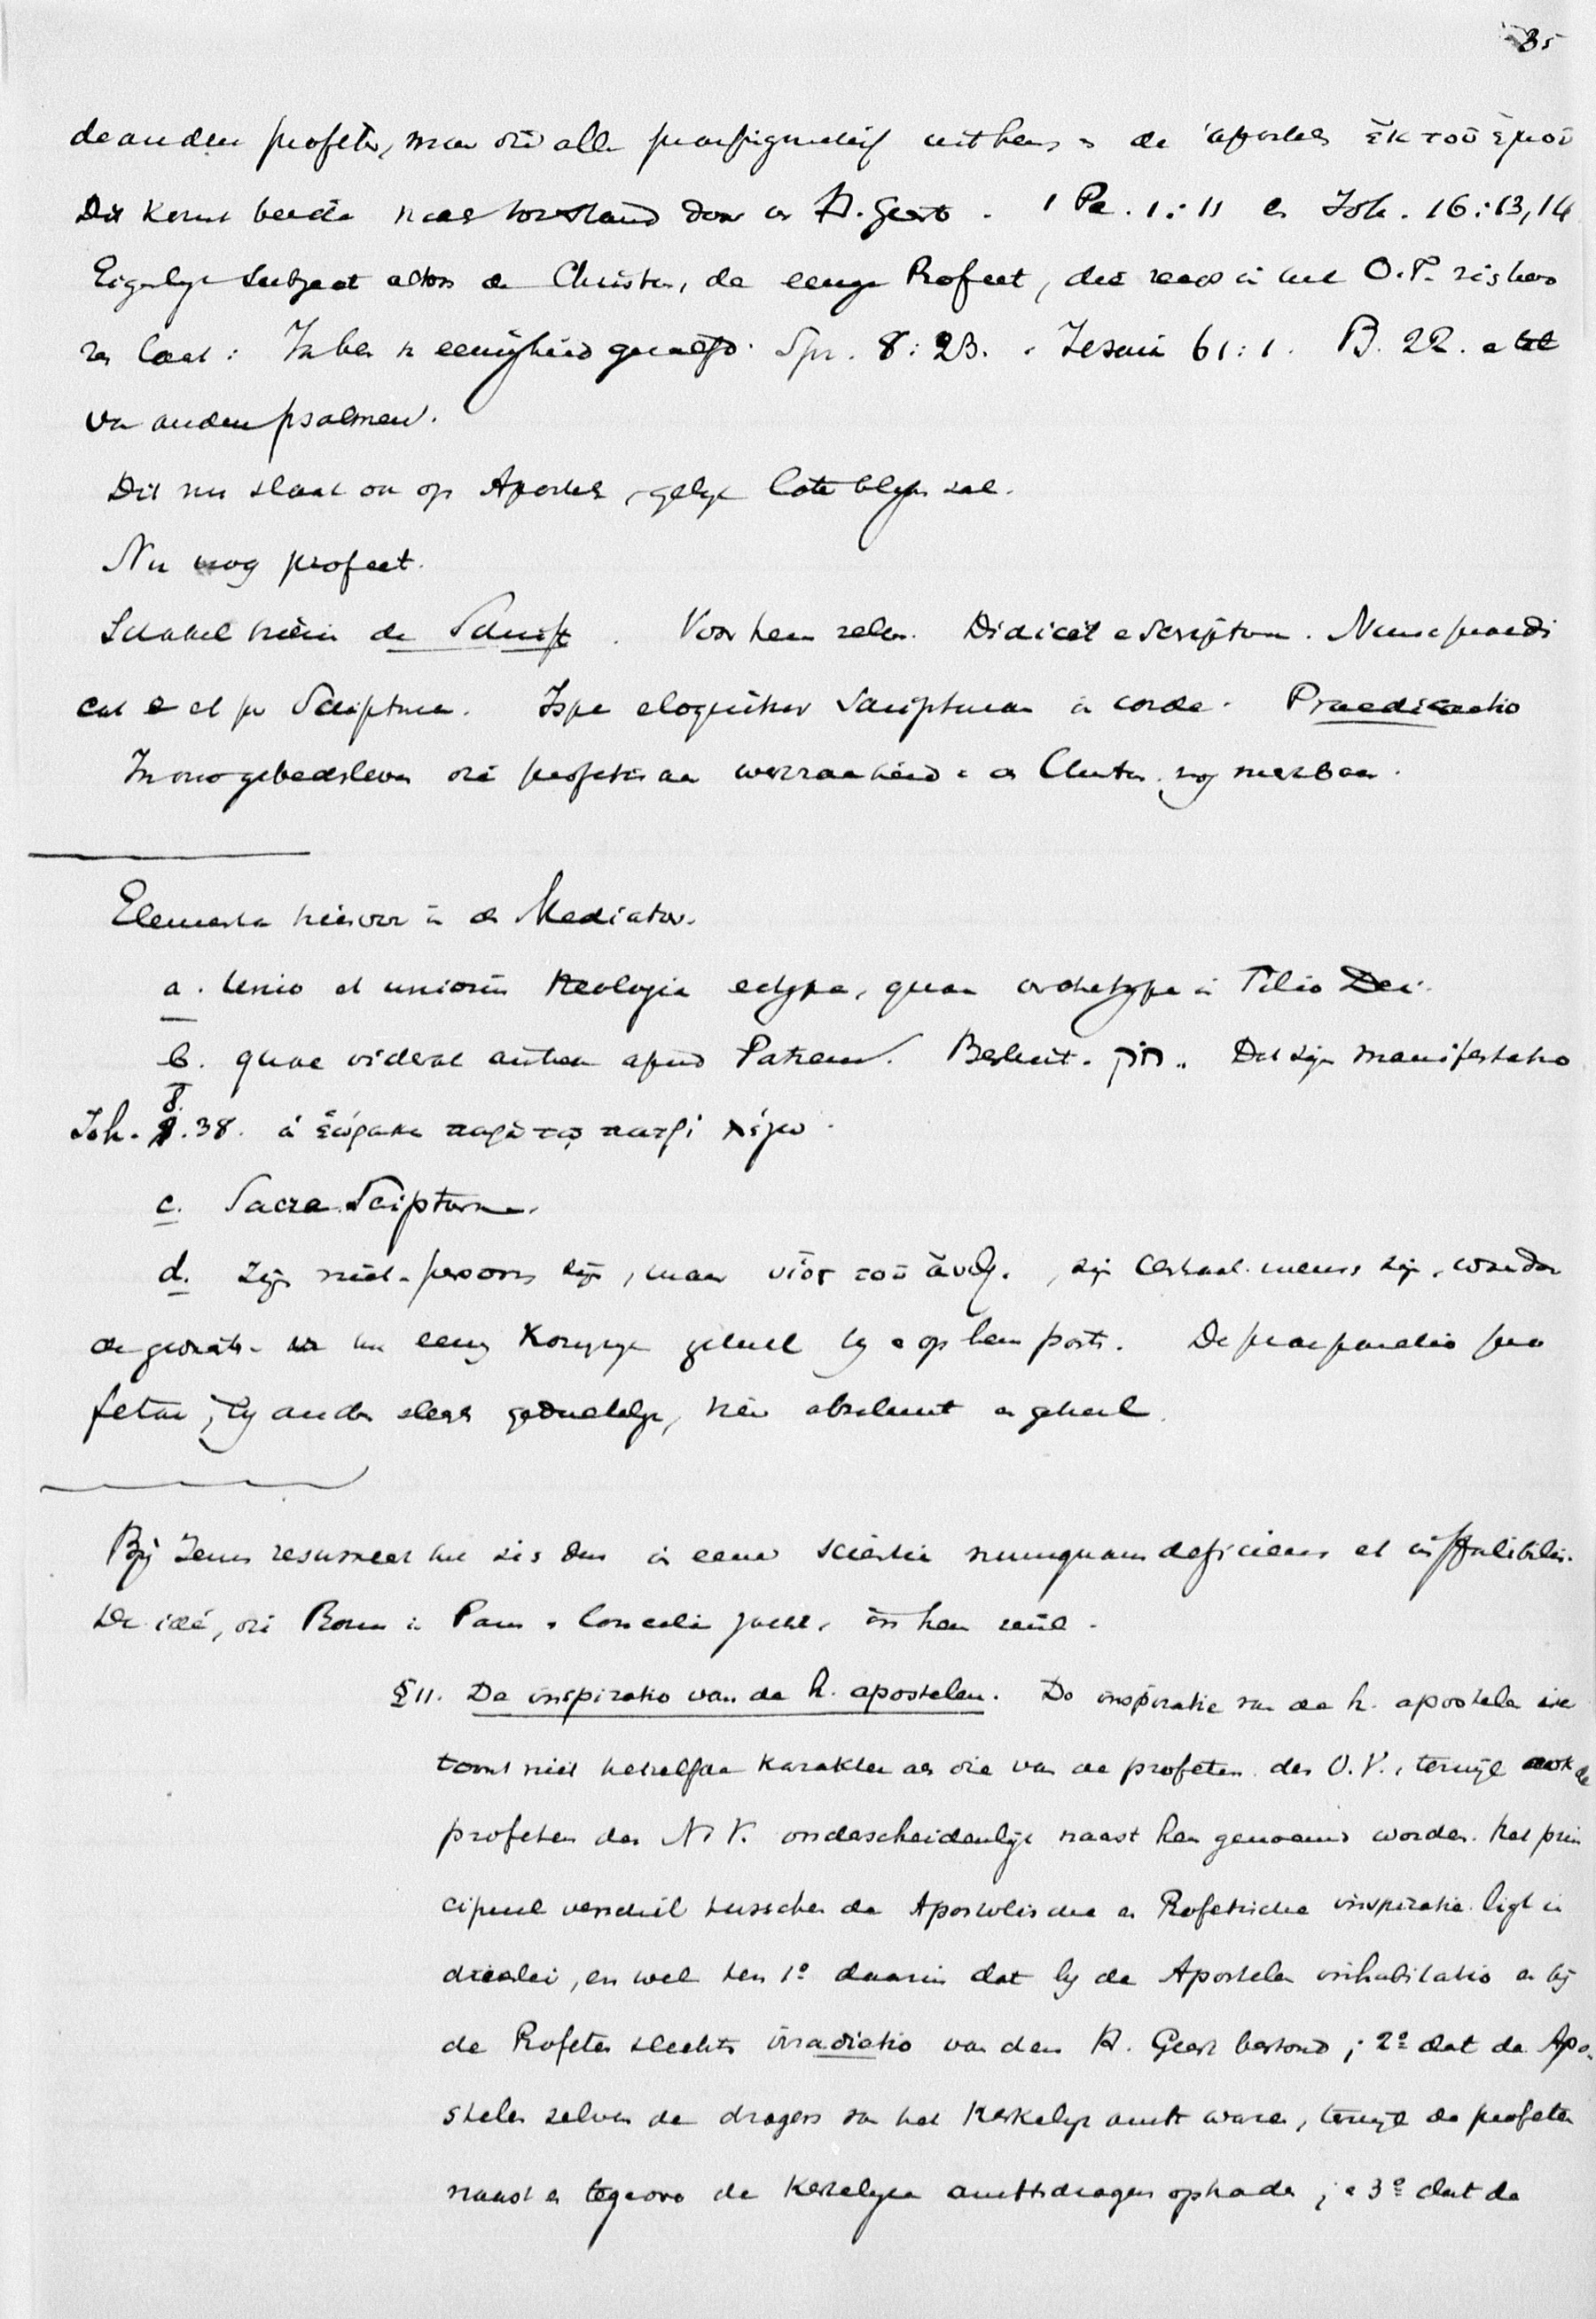 35
de andere profeten, maar die alle praefiguratief uit hem en de apostelen ἐκ τοῦ ἐμοῦ
Dit komt beide naar tot stand door den H. Geest. 1 Pe. 1:11 en Joh. 16:13,14
Eigenlyk subject altoos de Christus, de eenige Profeet, die reeds in het O.T. zich hoo
ren laat: Ik ben v eeuwigheid gezalfd. Spr. 8:23. Jesaia 61:1. Ps. 22. en tal
van andere psalmen.
Dit nu slaat ook op Apostelen, gelijk later blijken zal.
Nu nog profeet.
Schakel hierin de Schrift. Voor hem zelven. Didicit e Scriptura. Nunc praedi
cat e et per Scripturam. Ipse eloquitur Scripturam in corde. Praedicatio
In ons gebedsleven die profetische werkzaamheid van den Christus nog merkbaar.
Elementa hiervoor in den Mediator.
a. Unio et unionis theologia ectypa, quam archetypa in Filio Dei.
b. quae viderat antea apud Patrem. Besluit. חק. Dit zijn manifestatio
Joh. 8.38. ἃ ἑώρακα παρὰ τῷ πατρὶ λέγω.
c. Sacra Scriptura.
d. Zijn niet-persoon zijn, maar υἱὸς τοῦ ἀνθ., zijn Centraal-mensch zijn, waardoor
de geheele in een eenig geheel bij en op hem past. De praeparatio pro
fetae, bij anderen slechts gedeeltelijk, hier absoluut en geheel.
Bij Jezus resumeert het zich dus in eene scientia nunquam deficiens et infallibilis.
De idé, die Rome in Paus en Concilie zocht, in hem reëel.
§ 11. De inspiratio van de h. apostelen. De inspiratie van de h. apostelen ver
toont niet hetzelfde karakter als die van de profeten des O.V., terwijl ook de
profeten des N.V. onderscheidenlijk naast hen genoemd worden. Het prin
cipieel verschil tusschen de Apostolische en Profetische inspiratie ligt in
drieërlei, en wel ten 1º daarin dat bij de Apostelen inhabitatio en bij
de Profeten slechts irradiatio van den H. Geest bestond; 2º dat de Apo-
stelen zelven de dragers van het Kerkelijk ambt waren, terwijl de profeten
naast en tegenover de Kerkelijke ambtsdragers optraden; en 3º dat de